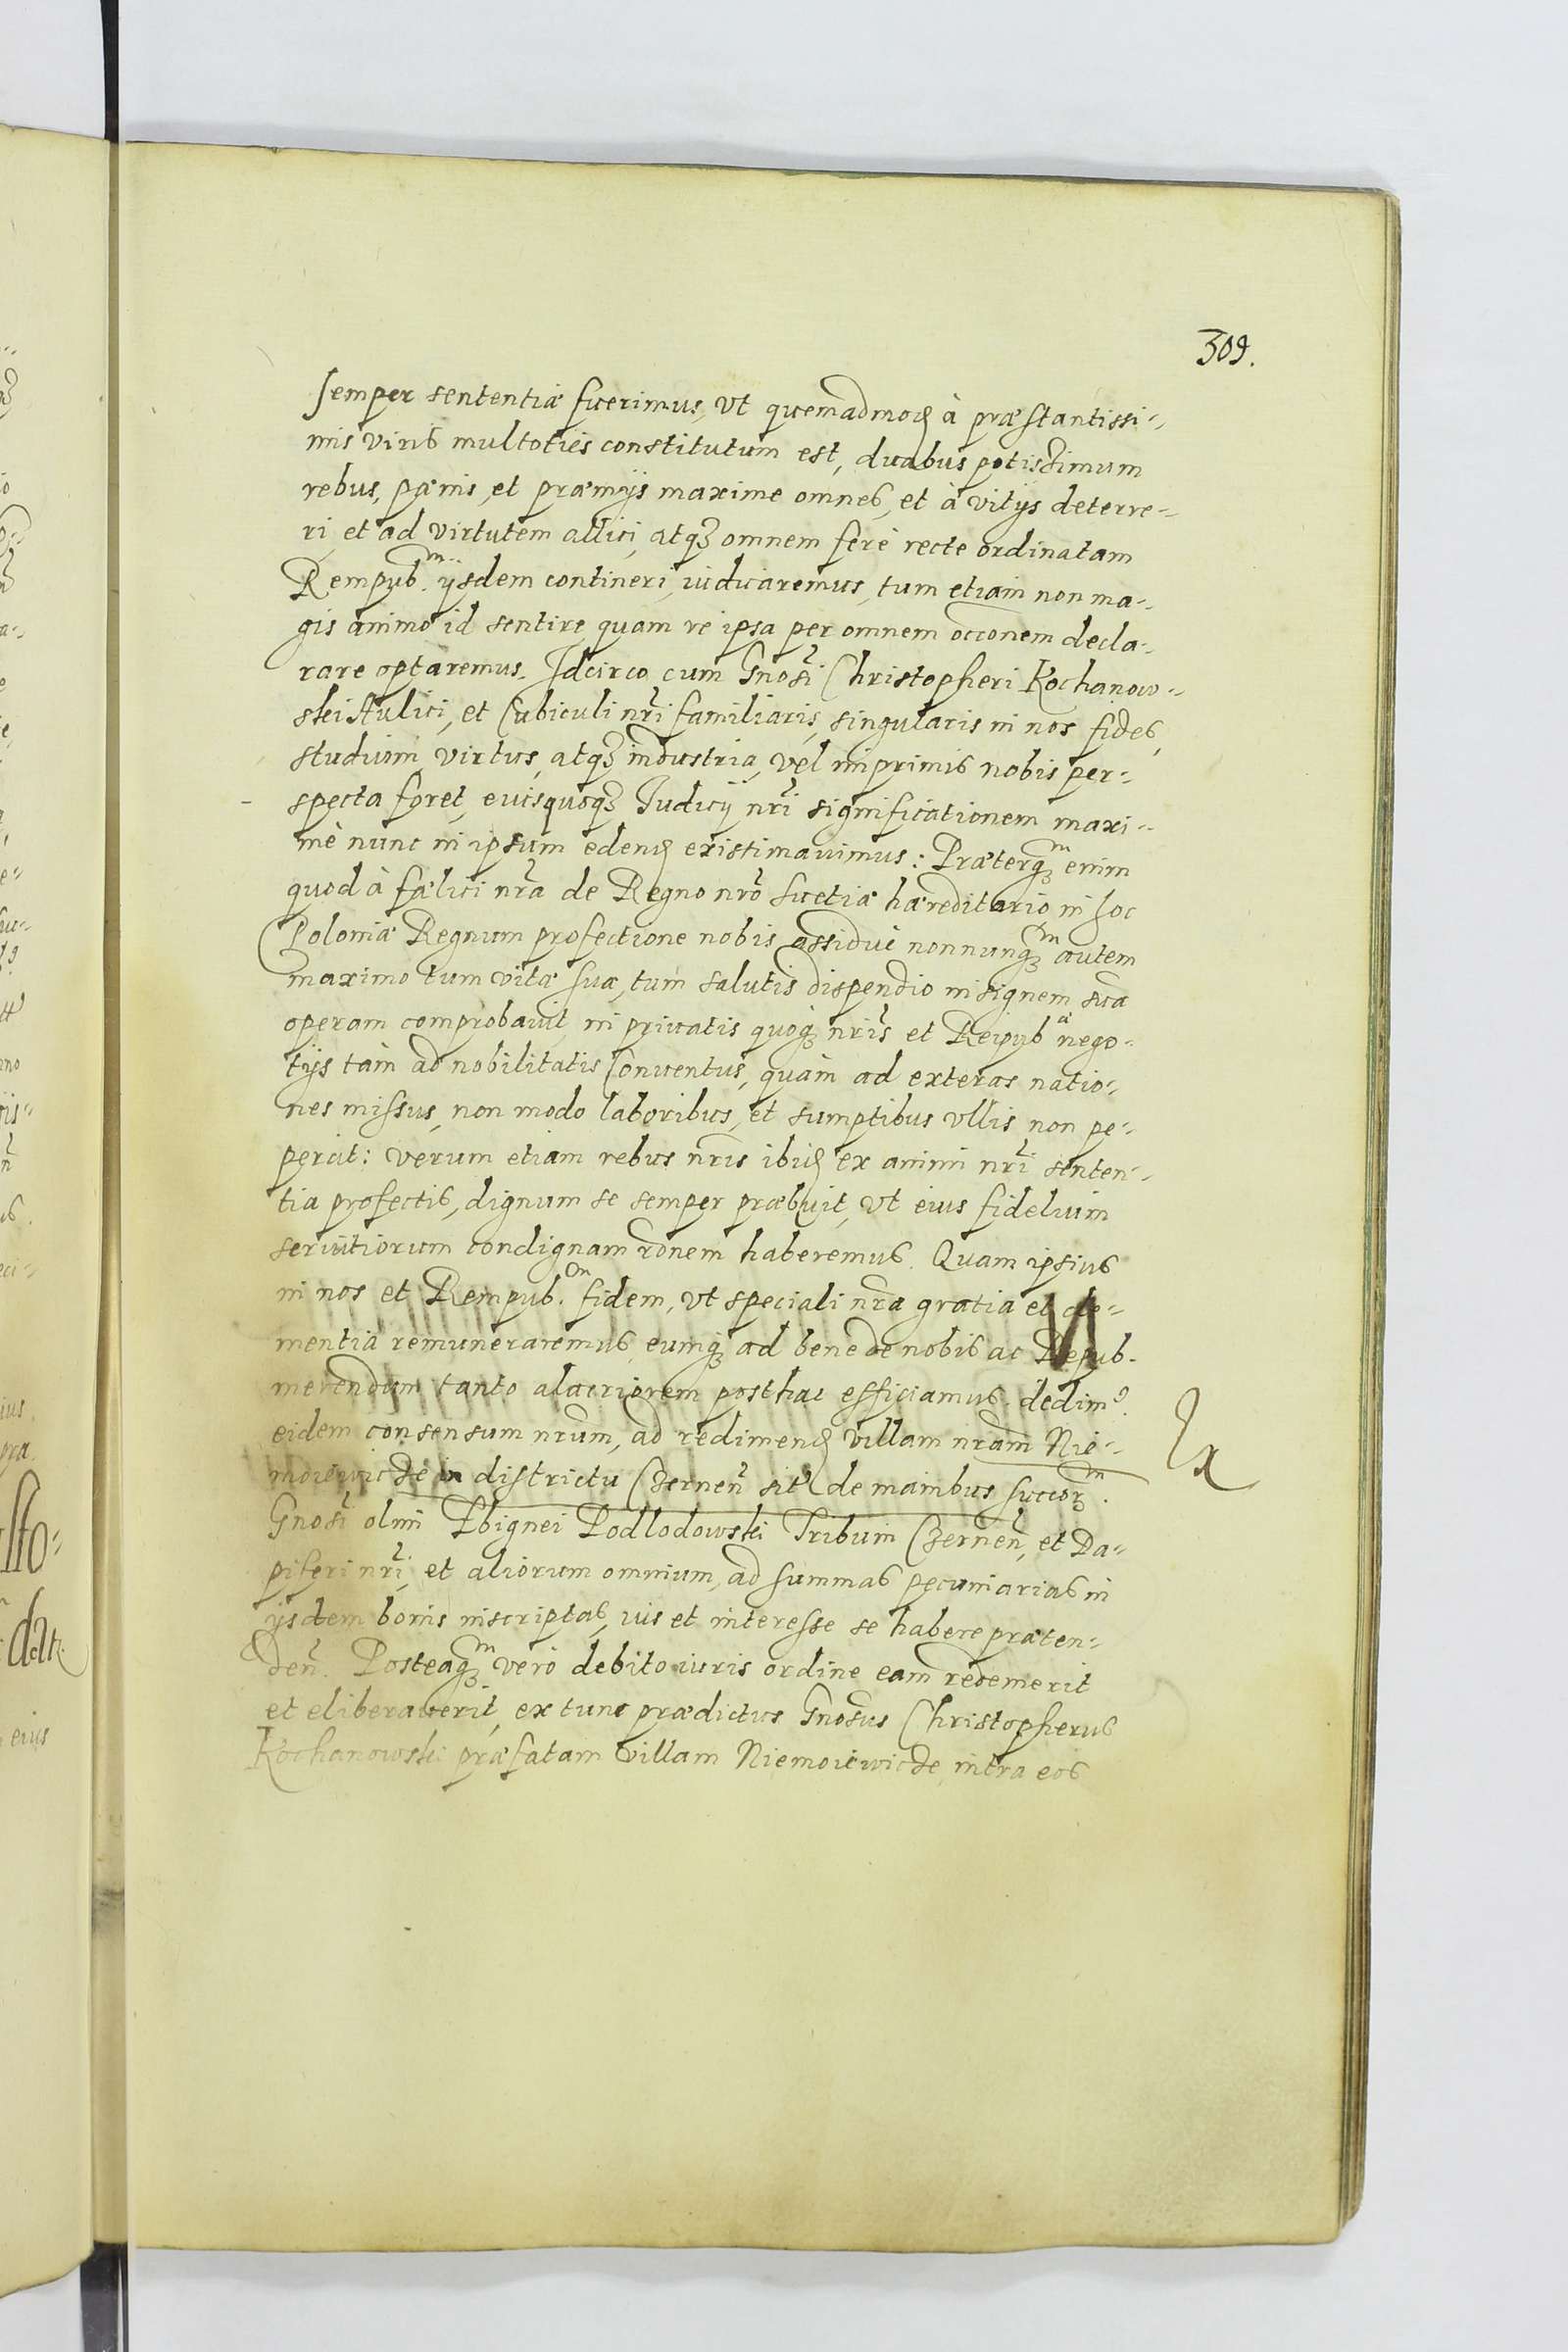 309.
semper sententiæ fuerimus, vt quemadmod à præstantissi-
mis viris multoties constitutum est, duabus potissimum
rebus, pænis, et præmijs maxime omnes, et à vitijs deterre-
ri et ad virtutem allici, atq3 omnem ferè recte ordinatam
Rempub.m ijsdem contineri, iudicaremus, tum etiam non ma-
gis animo id sentire quam re ipsa per omnem occonem decla-
rare optaremus. Idcirco cum Gnosi Christopheri Kochanow-
ski Aulici, et Cubiculi nri familiaris, singularis in nos fides,
studium virtus, atq3 industria, vel inprimis nobis per-
specta foret, euisquoq3 Iudicij nri significationem maxi-
mè nunc in ipsum edend existimauimus: Præterq3m enim
quod à fælici nra de Regno nro Suetiæ hæreditario, in hoc
Poloniæ Regnum profectione nobis assiduè nonnunq3m autem
maximo tum vitæ suæ, tum salutis dispendio insignem sua
operam comprobauit, in priuatis quoq3 nris et Reipub.æ nego-
tijs tàm ad nobilitatis Conuentus, quàm ad exteras natio-
nes missus, non modo laboribus, et sumptibus vllis non pe-
percit: verum etiam rebus nris ibid ex animi nri senten-
tia profectis, dignum se semper præbuit, vt eius fidelium
seruitiorum condignam ronem haberemus. Quam ipsius
in nos et Rempub.m fidem, vt speciali nra gratia et cle-
mentia remuneraremus, eumq3 ad bene de nobis ac Repub.
merendum tanto alacriorem posthac efficiamus. dedim9
eidem consensum nrum, ad redimend villam nram Nie-
moiewicde in districtu Czernen sit de manibus succor3m.
Ex
Gnosi olim Zbignei Podlodowski Tribuni Czernen, et Da-
piferi nri, et aliorum omnium, ad summas pecuniarias in
ijsdem bonis inscriptas, ius et interesse se habere præten-
den. Posteaq3m verò debito iuris ordine eam redemerit
et eliberauerit, extunc prædictus Gnosus Christopherus
Kochanowski præfatam villam Niemoiewicde, intra eos